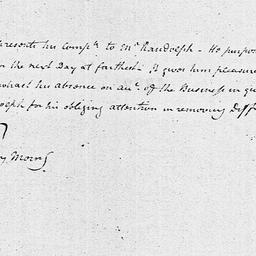 resents his Compts. to Mr. Randolph - He purpos
the next Day at farthest. It gives him pleasure
his absence on acct. of the Business in qu
olph for his obliging attention in removing Diff
y Morng